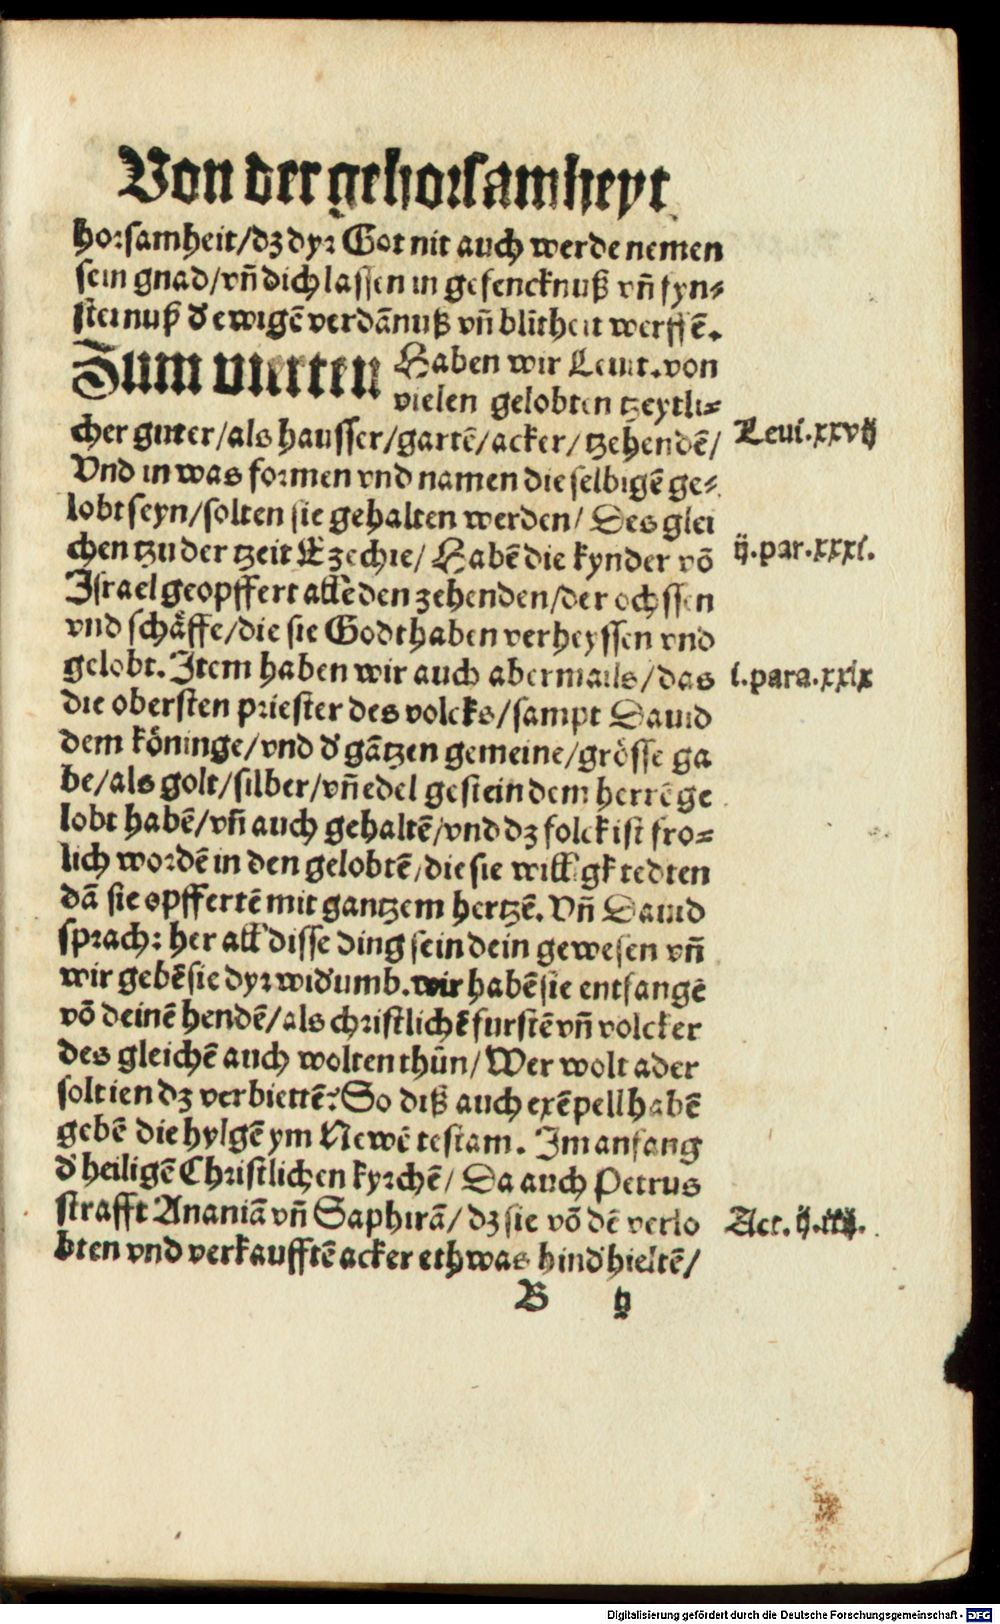 Von der gehorsamheyt
horsamheit/dz dyr Got nit auch werde nemen
sein gnad/vn̄ dich lassen in gefencknuß vn̄ fyn⸗
sternuß d' ewigē verdānuß vn̄ blītheit werffē.
Zum vierten Haben wir Leuit. von
vielen gelobten tzeytli⸗
cher guter/als hausser/gartē/acker/tzehendē/
Leui.xxvij
Vnd in was formen vnd namen die selbigē ge⸗
lobt seyn/solten sie gehalten werden/ Des glei
chen tzu der tzeit Ezechie/ Habē die kynder vō
ij.par.xxxi.
Israel geopffert allē den zehenden/der ochssen
vnd schäffe/die sie Godt haben verheyssen vnd
gelobt. Item haben wir auch abermails/das
i.para.xxix
die obersten priester des volcks/sampt Dauid
dem köninge/vnd d' gātzen gemeine/grösse ga
be/als golt/silber/vn̄ edel gestein dem herrē ge
lobt habē/vn̄ auch gehaltē/vnd dz folck ist fro⸗
lich wordē in den gelobtē/die sie willigk tedten
dā sie opffertē mit gantzem hertzē. Vn̄ Dauid
sprach: her all disse ding sein dein gewesen vn̄
wir gebē sie dyr wid'umb. wir habē sie entfangē
vō deinē hendē/als christlichē furstē vn̄ volcker
des gleichē auch wolten thūn/ Wer wolt ader
solt ien dz verbiettē? So diß auch exēpell habē
gebē die hylgē ym Newē testam. Im anfang
d' heiligē Christlichen kyrchē/ Da auch Petrus
strafft Ananiā vn̄ Saphirā/ dz sie vō dē verlo
Act. ij.
bten vnd verkaufftē acker ethwas hind'hieltē/
B ij
Digitalisierung gefördert durch die Deutsche Forschungsgemeinschaft - DFG